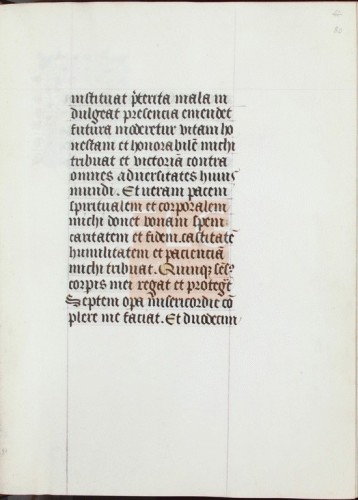 instituat p̄terita mala in
dulgeat presencia emendet
futura moderetur vitam ho
nestam et honorabilē michi
tribuat et victoriā contra
omnes aduersitates huius
mundi. Et ueram pacem
spiritualem et corporalem
michi donet bonam spem
caritatem et fidem castitatē
humilitatem et pacienciā
michi tribuat. Quinqȝ sēs⁹
corpis mei regat et protegēt
Septem opa misericordie cō
plere me faciat. Et duodecim